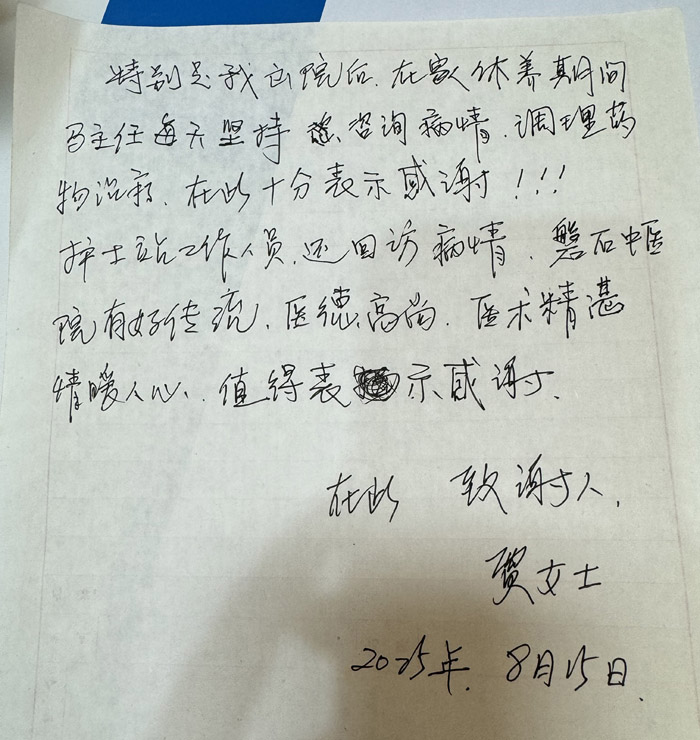 特别是我出院后、在家休养期间
马主任每天坚持 咨询病情、调理药
物治疗、在此十分表示感谢！！！
护士站工作人员、还回访病情、磐石中医
院有好传统、医德高尚、医术精湛
情暖人心、值得表示感谢、
在此 致谢人、
贾女士
2025年、8月15日、